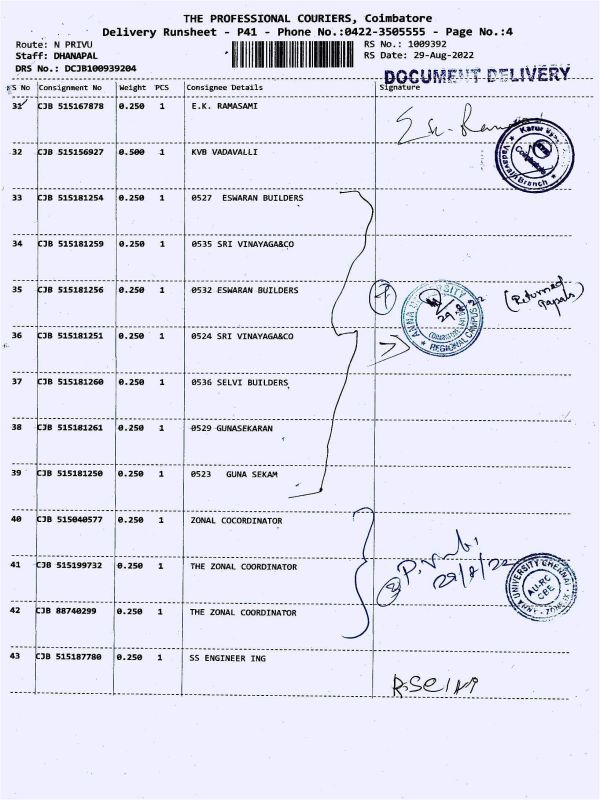 THE PROFESSIONAL COURIERS, Coimbatore
Delivery Runsheet - P41 - Phone No.:0422-3505555 - Page No.:4
Route: N PRIVU
Staff: DHANAPAL
DRS No.: DCJB100939204
RS No.: 1009392
RS Date: 29-Aug-2022
DOCUMENT DELIVERY
S No Consignment No Weight PCS Consignee Details Signature
31 CJB 515167878 0.250 1 E.K. RAMASAMI
32 CJB 515156927 0.500 1 KVB VADAVALLI
Vadavalli Branch
33 CJB 515181254 0.250 1 0527 ESWARAN BUILDERS
34 CJB 515181259 0.250 1 0535 SRI VINAYAGA&CO
35 CJB 515181256 0.250 1 0532 ESWARAN BUILDERS
ANNA UNIVERSITY
29.8.22
REGIONAL CAMPUS
(Returned
Papers)
36 CJB 515181251 0.250 1 0524 SRI VINAYAGA&CO
37 CJB 515181260 0.250 1 0536 SELVI BUILDERS
38 CJB 515181261 0.250 1 0529 GUNASEKARAN
39 CJB 515181250 0.250 1 0523 GUNA SEKAM
40 CJB 515040577 0.250 1 ZONAL COCORDINATOR
41 CJB 515199732 0.250 1 THE ZONAL COORDINATOR
29/8/22
ANNA UNIVERSITY CHENNAI
AU-RC
CBE
42 CJB 88740299 0.250 1 THE ZONAL COORDINATOR
43 CJB 515187780 0.250 1 SS ENGINEER ING